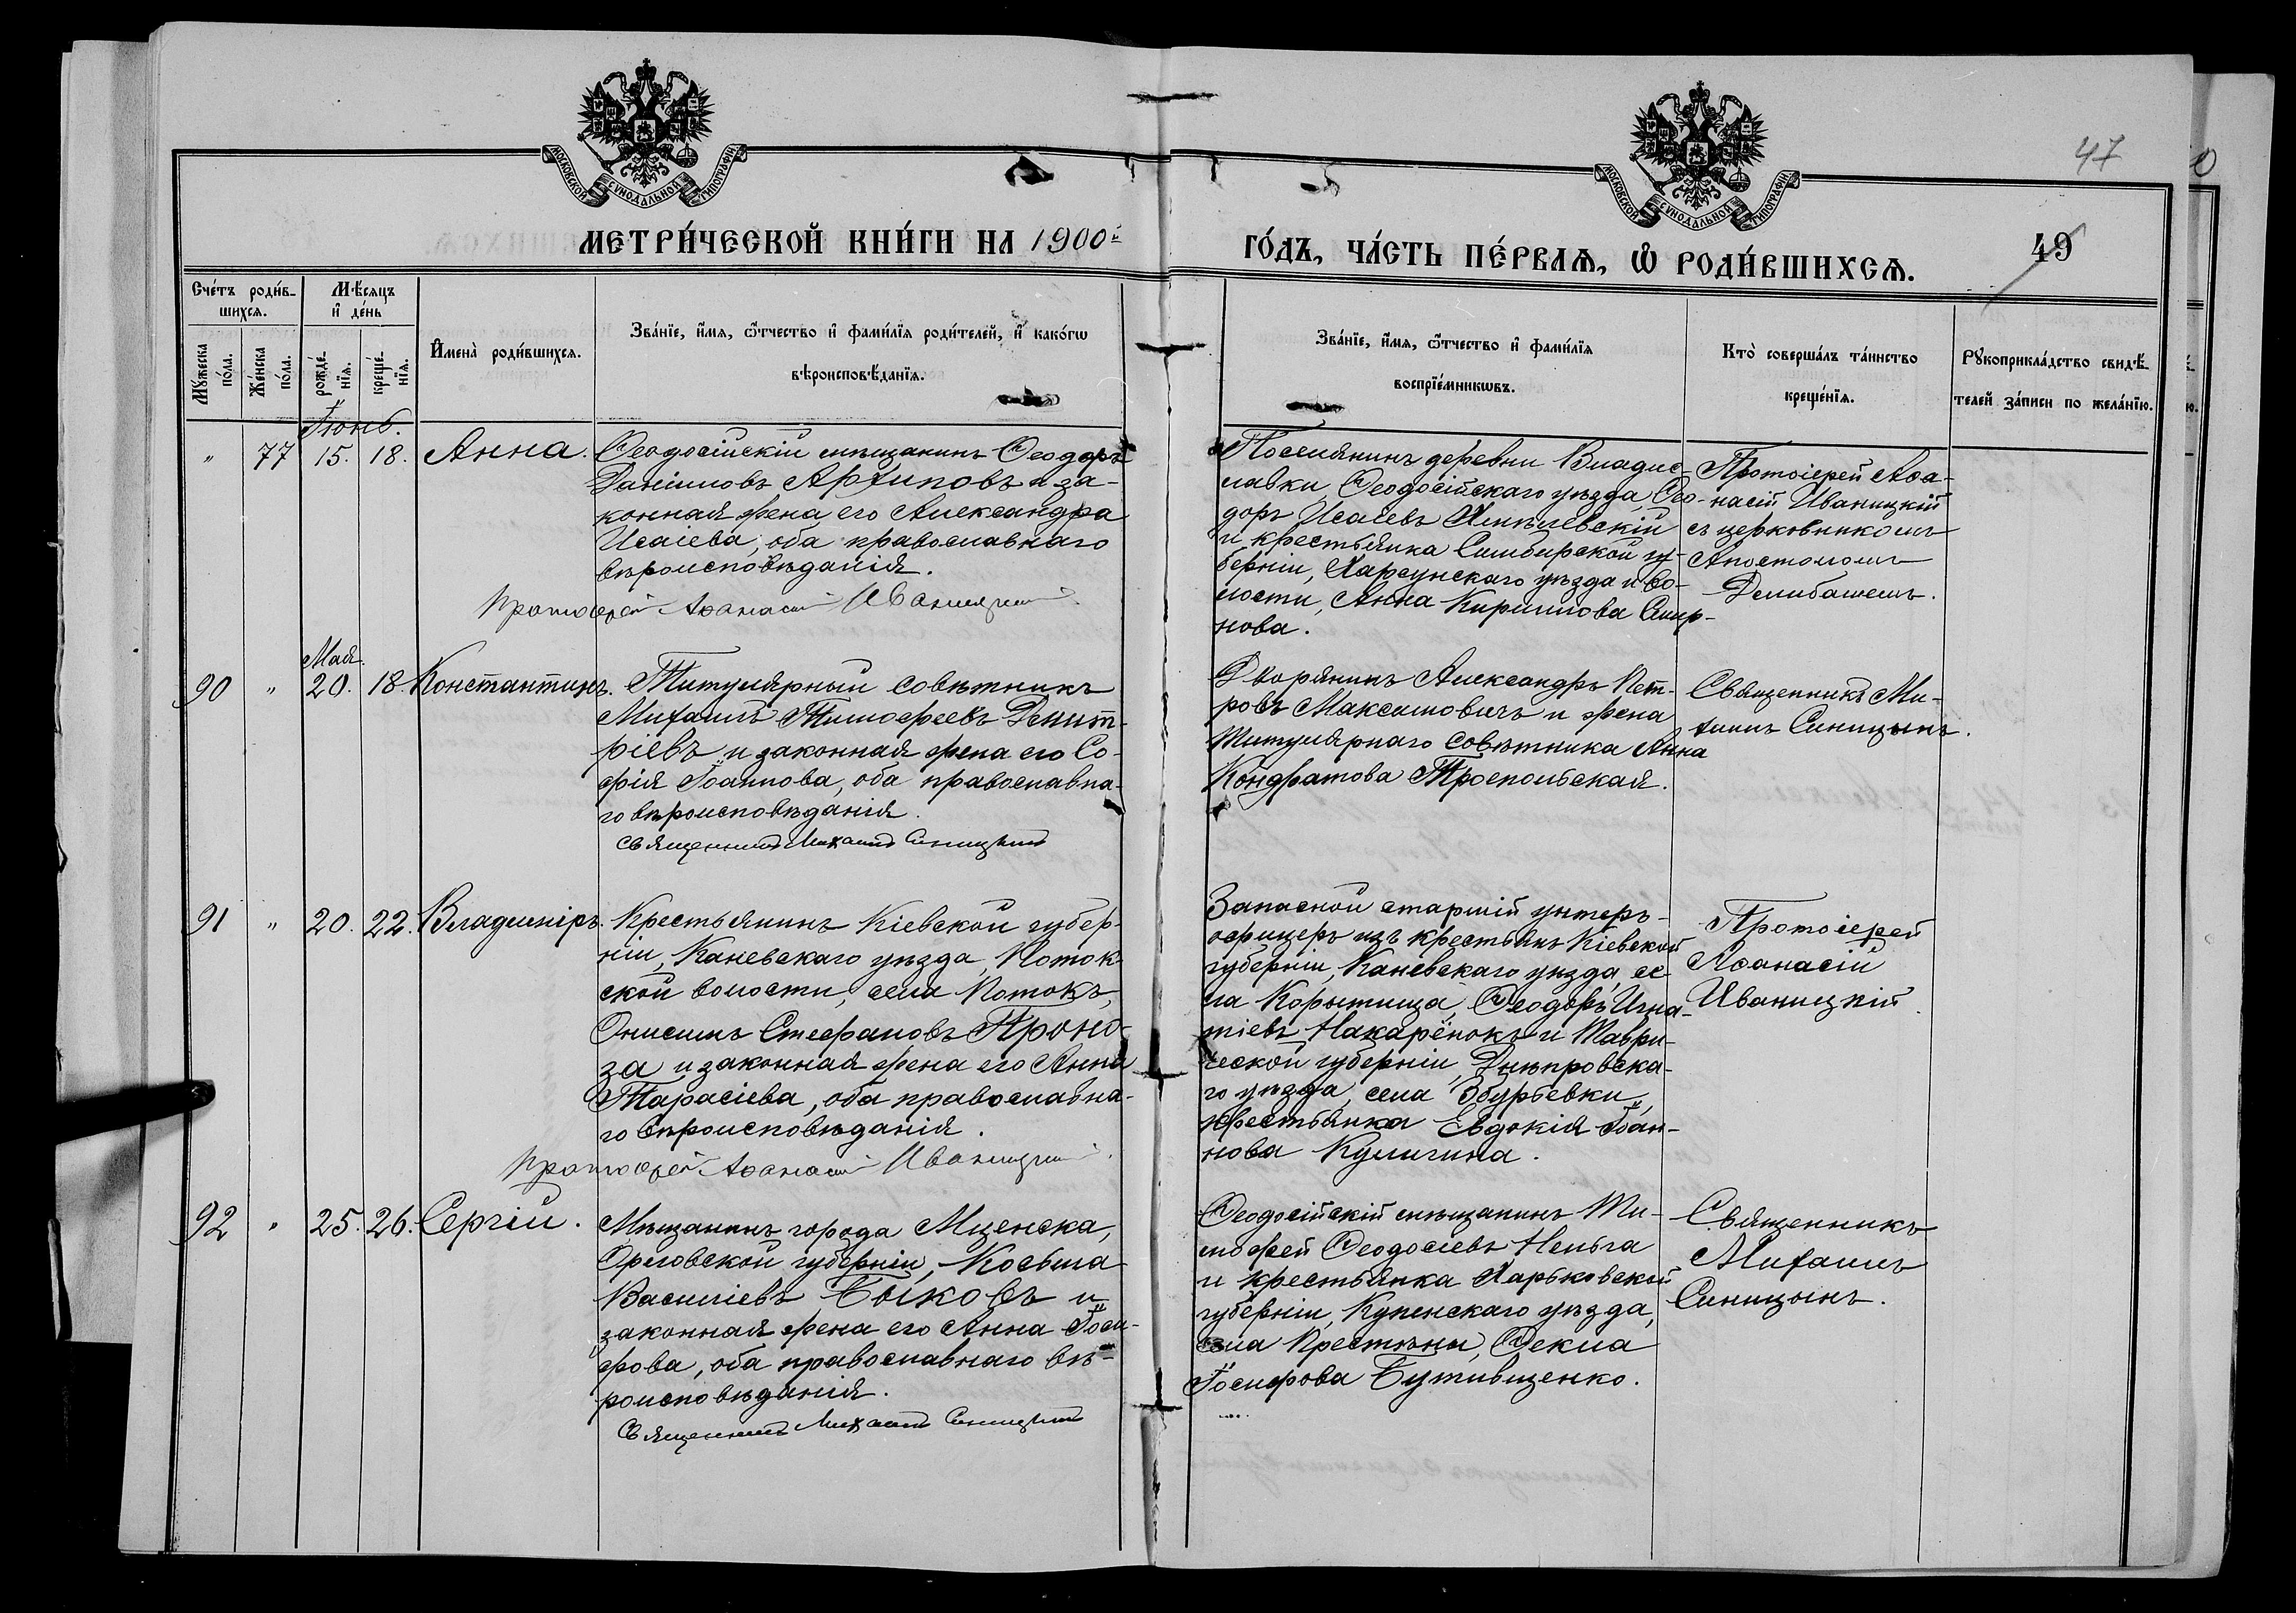 МОСКОВСКОЙ СѴНОДАЛЬНОЙ ТИПОГРАФІИ
МОСКОВСКОЙ СѴНОДАЛЬНОЙ ТИПОГРАФІИ
47
МЕТРИ́ЧЕСКОЙ КНИ́ГИ НА 1900й
ГО́ДЪ, ЧА́СТЬ ПЕ́РВАѦ, Ѡ҆ РОДИ́ВШИХСѦ.
49
Сче́тъ роди́в-
шихсѧ.
Мѣ́сѧцъ
и҆ де́нь
Мꙋ́жеска
по́ла.
Же́нска
по́ла.
рожде́-
нїѧ.
креще́-
нїѧ.
И҆мена̀ роди́вшихсѧ.
Зва́нїе, и҆́мѧ, ѻ҆́тчество и҆ фами́лїѧ роди́телей, и҆ како́гѡ
вѣроисповѣ́данїѧ.
Зва́нїе, и҆́мѧ, ѻ҆́тчество и҆ фами́лїѧ
воспрїе́мникѡвъ.
Кто̀ соверша́лъ та́инство
креще́нїѧ.
Рꙋкоприкла́дство свидѣ́-
телей за́писи по жела́нїю.
Іюнь.
" 77 15. 18. Анна.
Ѳеодосійскій мѣщанинъ Ѳеодоръ
Даніиловъ Архиповъ и за-
конная жена его Александра
Исаіева, оба православнаго
вѣроисповѣданія.
Протоіерей Аѳанасій Иваницкій.
Поселянинъ деревни Владис-
лавки, Ѳеодосійскаго уѣзда, Ѳео-
доръ Исаіевъ Хмѣлевскій
и крестьянка Симбирской гу-
берніи, Карсунскаго уѣзда и во-
лости, Анна Кириллова Смир-
нова.
Протоіерей Аѳа-
насій Иваницкій
съ церковникомъ
Апостоломъ
Делибашемъ.
Мая.
90 " 20. 18. Константинъ.
Титулярный совѣтникъ
Михаилъ Тимофеевъ Дмит-
ріевъ и законная жена его Со-
фія Іоаннова, оба православна-
го вѣроисповѣданія.
Священникъ Михаилъ Синицынъ
Дворянинъ Александръ Пет-
ровъ Максимовичъ и жена
титулярнаго совѣтника Анна
Кондратова Троспольская.
Священникъ Ми-
хаилъ Синицынъ.
91 " 20. 22. Владиміръ.
Крестьянинъ Кіевской губер-
ніи, Каневскаго уѣзда, Поток-
ской волости, села Потокъ,
Онисимъ Стефановъ Проно-
за и законная жена его Анна
Тарасіева, оба православна-
го вѣроисповѣданія.
Протоіерей Аѳанасій Иваницкій.
Запасной старшій унтеръ-
офицеръ изъ крестьянъ Кіевской
губерніи, Каневскаго уѣзда, се-
ла Корытища, Ѳеодоръ Игна-
тіевъ Макарёнокъ и Таври-
ческой губерніи, Днѣпровска-
го уѣзда, села Збурьевки,
крестьянка Евдокія Іоан-
нова Куличина.
Протоіерей
Аѳанасій
Иваницкій.
92 " 25. 26. Сергій.
Мѣщанинъ города Мценска,
Орловской губерніи, Косьма
Василіевъ Быковъ и
законная жена его Анна Іоси-
фова, оба православнаго вѣ-
роисповѣданія.
Священникъ Михаилъ Синицынъ
Ѳеодосійскій мѣщанинъ Ти-
мофей Ѳеодосіевъ Неньга
и крестьянка Харьковской
губерніи, Купенскаго уѣзда,
села Престѣны, Ѳекла
Іосифова Бутивщенко.
Священникъ
Михаилъ
Синицынъ.